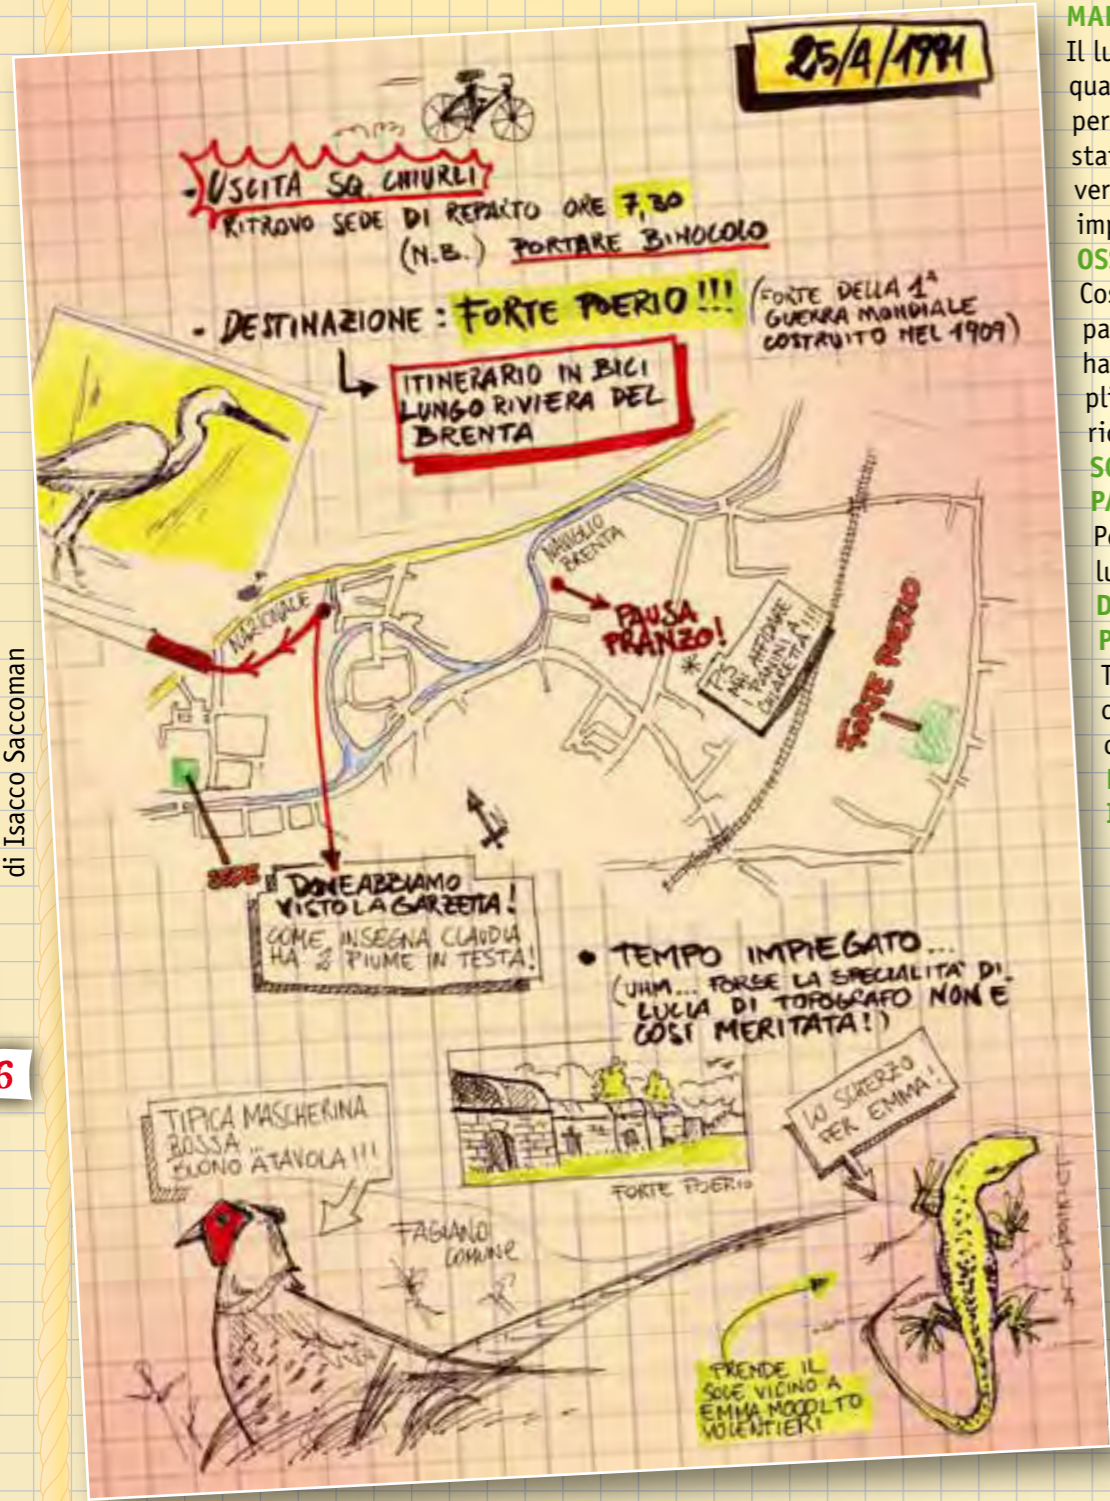 25/4/1991
- USCITA SQ. CHIURLI
RITROVO SEDE DI REPARTO ORE 7,30
(N.B.) PORTARE BINOCOLO
- DESTINAZIONE: FORTE POERIO!!!
(FORTE DELLA 1ª
GUERRA MONDIALE
COSTRUITO NEL 1909)
ITINERARIO IN BICI
LUNGO RIVIERA DEL
BRENTA
NAVIGLIO
BRENTA
NAZIONALE
PAUSA
PRANZO!
* PS
MAI AFFIDARE
I PANINI A
CHIARETTA!!!
FORTE POERIO
SEDE
DOVE ABBIAMO
VISTO LA GARZETTA!
COME INSEGNA CLAUDIA
HA 2 PIUME IN TESTA!
• TEMPO IMPIEGATO...
(UHM... FORSE LA SPECIALITA' DI
LUCIA DI TOPOGRAFO NON E
COSÌ MERITATA!)
TIPICA MASCHERINA
ROSSA...
BUONO A TAVOLA!!!
FORTE POERIO
LO SCHERZO
PER EMMA!
FAGIANO
COMUNE
PRENDE IL
SOLE VICINO A
EMMA MOOOLTO
VOLENTIERI
di Isacco Saccoman
6
Il lu
qua
per
stat
ver
imp
OSS
Cos
pa
ha
pli
ric
SO
PA
P
lu
D
P
T